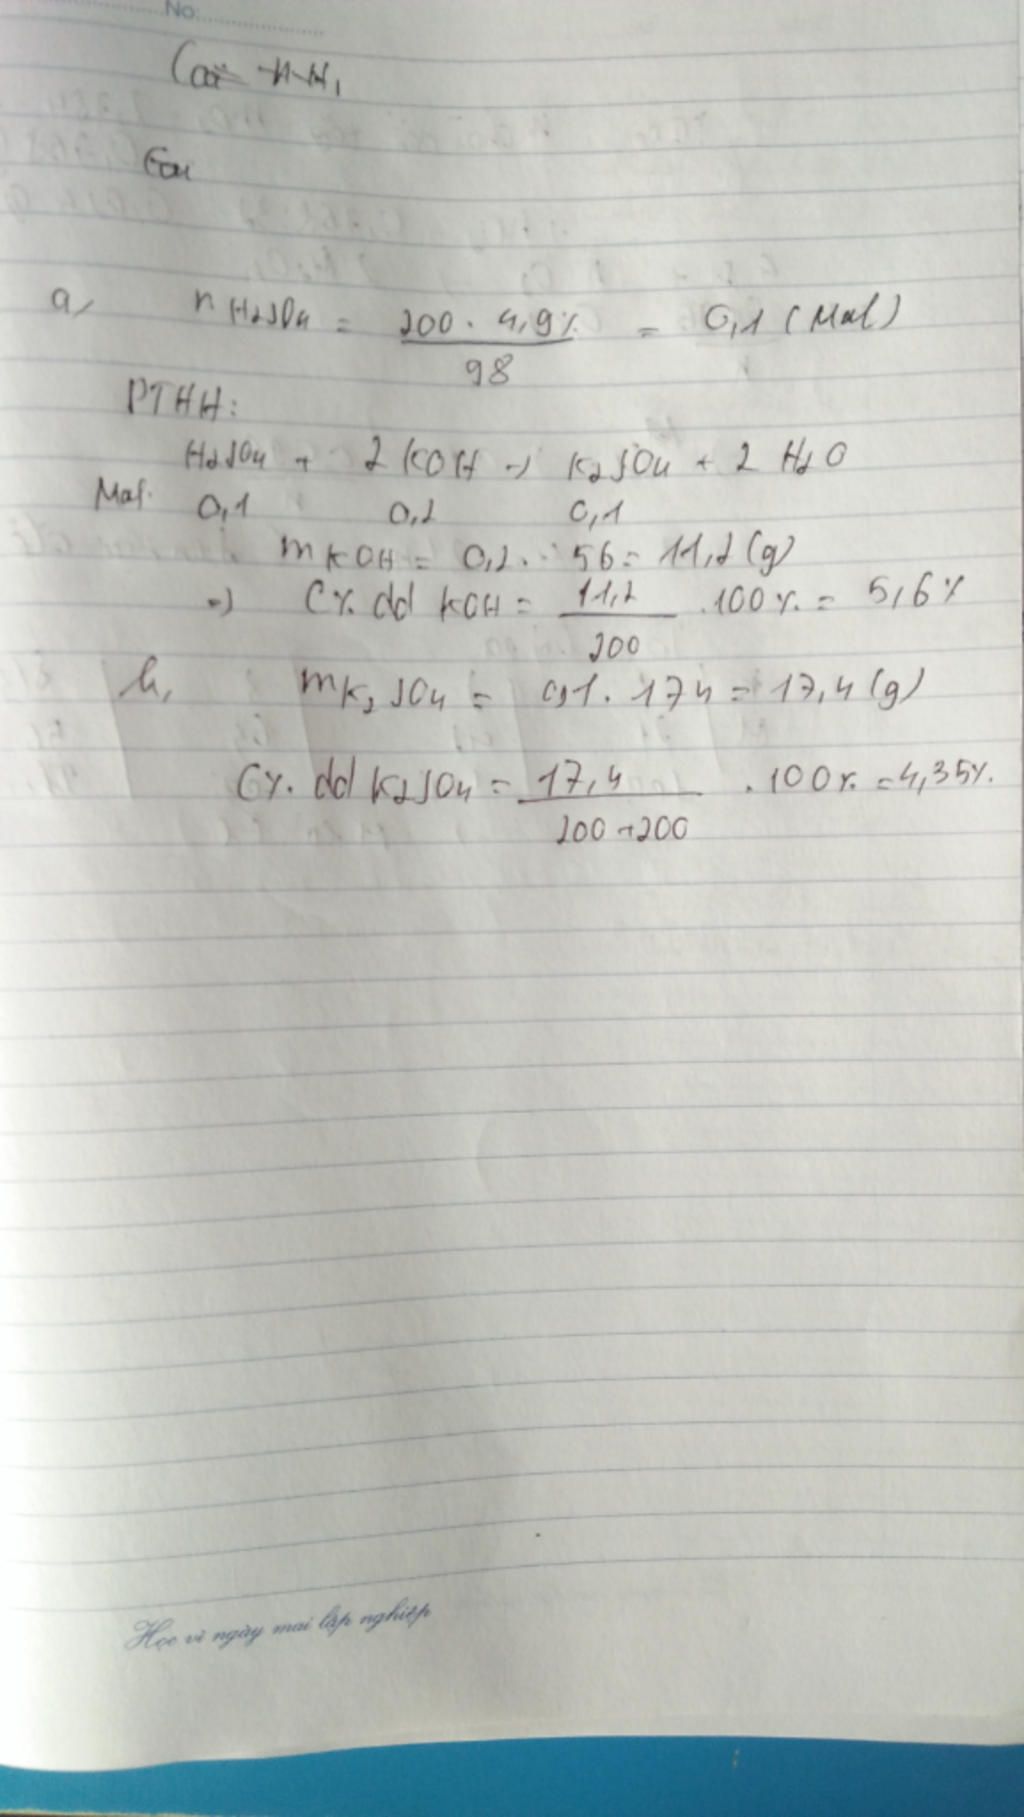 No:
a,
n H2SO4 = 200 . 4,9% / 98 = 0,1 (Mol)
PTHH:
H2SO4 + 2 KOH → K2SO4 + 2 H2O
Mol: 0,1 0,2 0,1
m KOH = 0,2 . 56 = 11,2 (g)
=) C%. dd KOH = 11,2 / 200 . 100%. = 5,6%
b, m K2SO4 = 0,1 . 174 = 17,4 (g)
C%. dd K2SO4 = 17,4 / 200+200 . 100%. = 4,35%.
Học vì ngày mai lập nghiệp